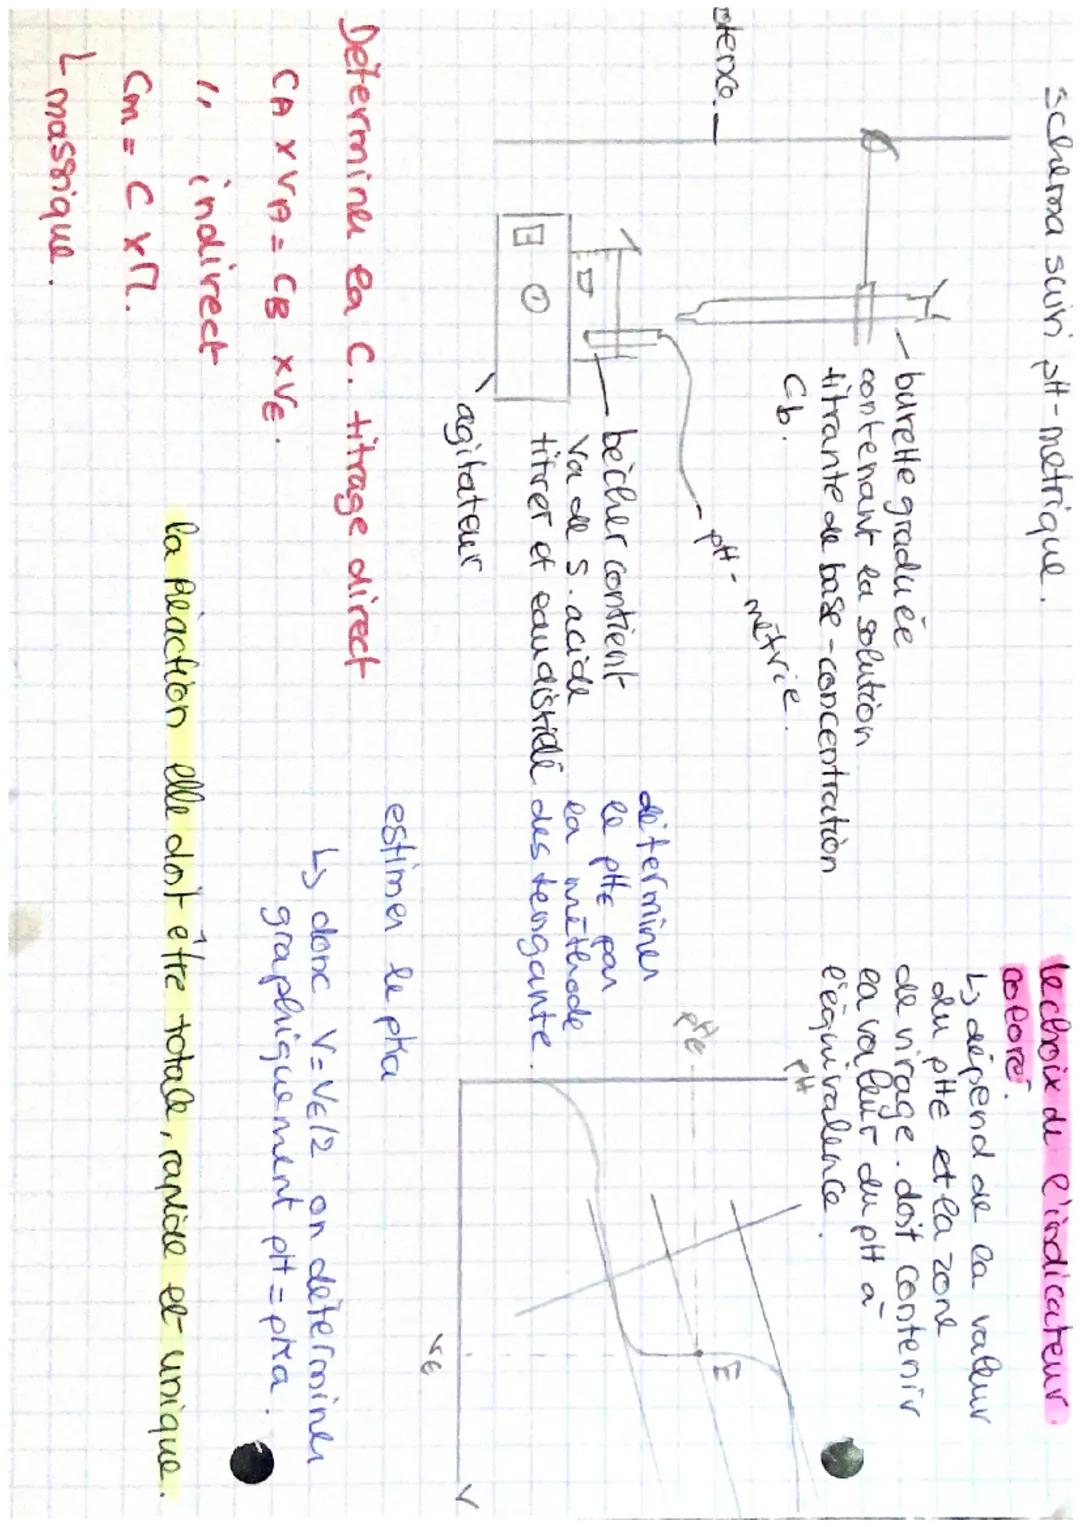 schema suivi pH-métrique.
burette graduée
contenant la solution
titrante de base-concentration
Cb.
pH-métrie.
bécher contient
Va de S. acide
titrer et eau distillé
agitateur
Déterminer la C. titrage direct
CA x VA = CB x VE.
" indirect
Cm = C x M.
massique.
le choix de l'indicateur
coloré.
↳ dépend de la valeur
du pHE et la zone
de virage. doit contenir
la valeur du pH à
l'équivalence.
déterminer
le pHE par
la méthode
des tengante.
pH
pHe
E
VE
V
estimer le pKa
↳ donc V=VE/2 on déterminer
graphiquement pH = pKa.
la Réaction elle doit être totale, rapide et unique.